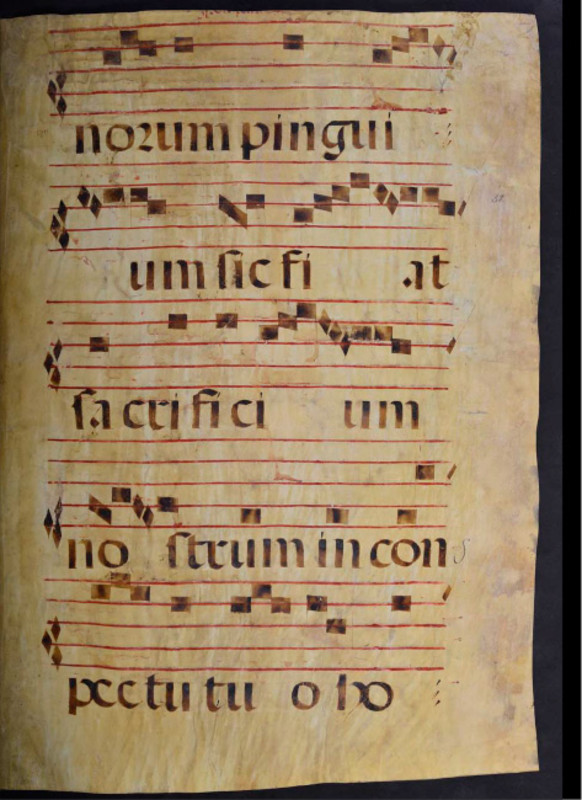 norum pingui
um sic fi at
sacrifici um
no strum in cons
pectu tu o ho